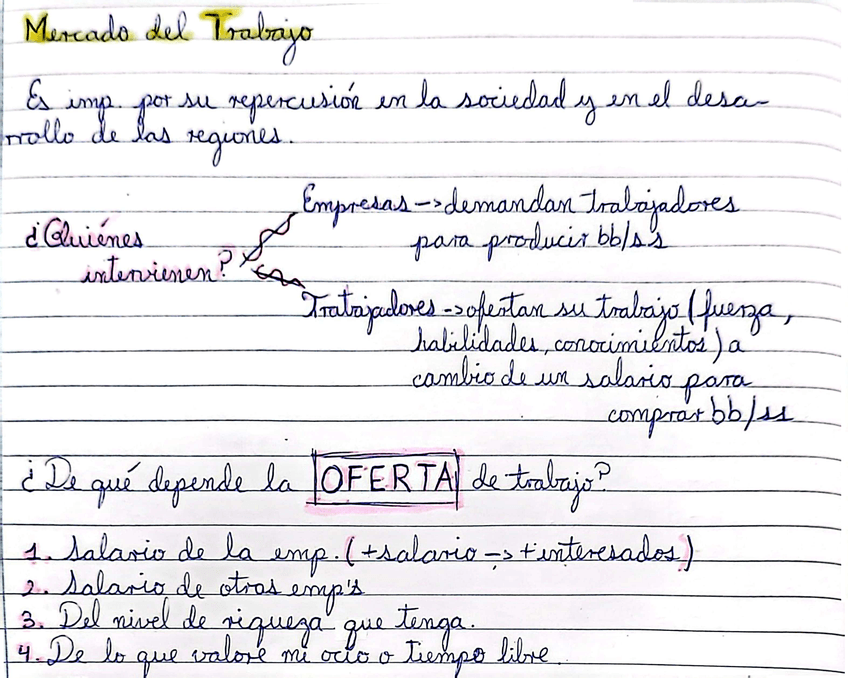 Mercado del Trabajo
Es imp. por su repercusión en la sociedad y en el desa-
rrollo de las regiones.
Empresas -> demandan trabajadores
¿Quiénes
para producir bb/ss
intervienen?
Trabajadores -> ofertan su trabajo (fuerza,
habilidades, conocimientos) a
cambio de un salario para
comprar bb/ss
¿De qué depende la OFERTA de trabajo?
1. Salario de la emp. (+salario -> +interesados)
2. Salario de otras emp's
3. Del nivel de riqueza que tenga.
4. De lo que valore mi ocio o tiempo libre.